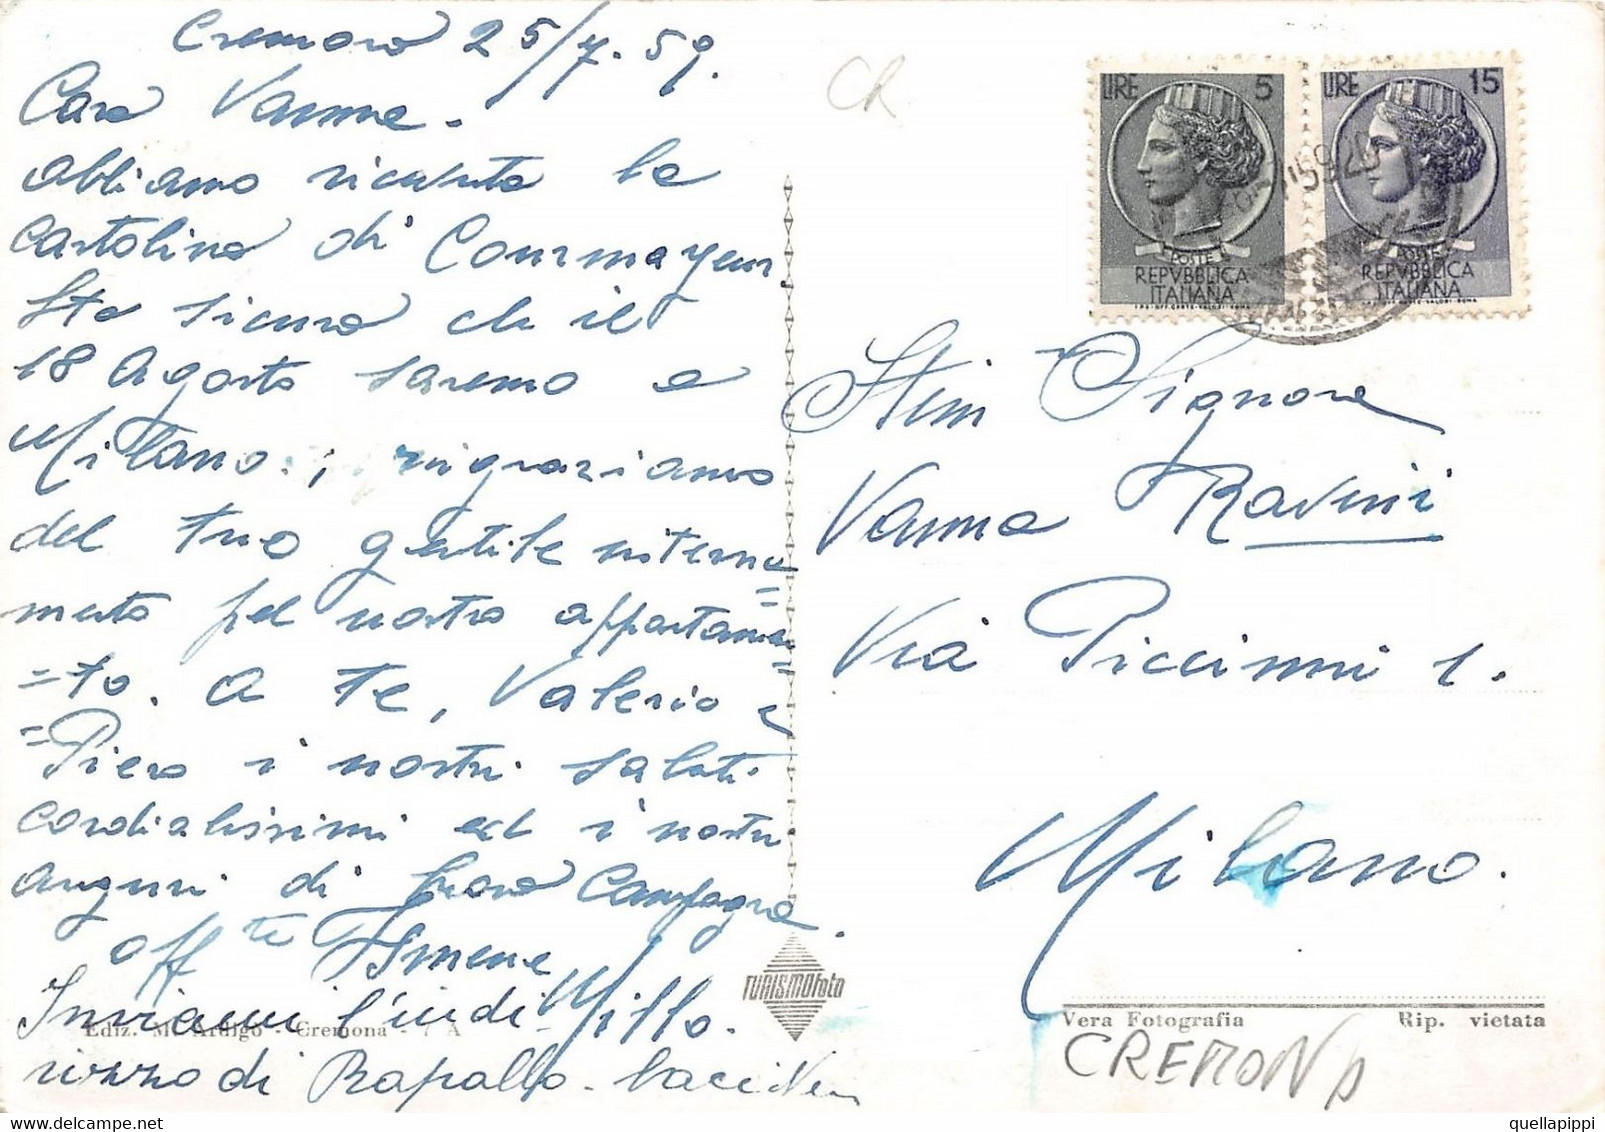 Cremona 25/7.59.
Cara Vanna.
abbiamo ricevuto la
cartolina di Courmayeur
Sta sicura che il
18 Agosto saremo a
Milano.; ringraziamo
del tuo gentile interna
=
mento pel nostro appartamen
=
=to. A te, Valerio e
=Piero i nostri saluti
cordialissimi ed i nostri
auguri di buona Campagna.
aff te Ismene
Millo.
Inviami l'indi
rizzo di Rapallo - baci
CR
LIRE 5
POSTE
REPVBBLICA
ITALIANA
LIRE 15
POSTE
REPVBBLICA
ITALIANA
Stim Signora
Vanna Ravini
Via Piccinni 1.
Milano.
TURISMOfoto
Ediz. M. Ardigò - Cremona - 7 A
Vera Fotografia Rip. vietata
CREMONA
quellapippi